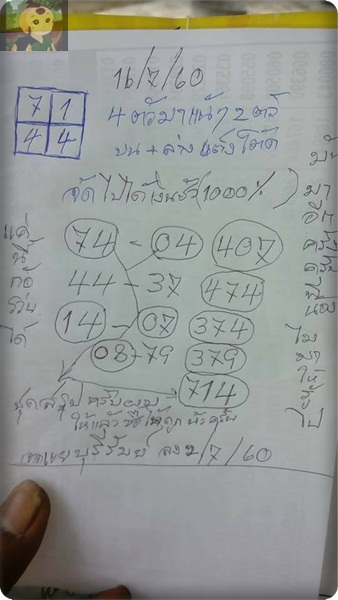 16/7/60
7 1
4 4
4 ตัวมาแน่ๆ 2 ตัว
บน + ล่าง แต่งโต๊ด
จัดไปได้เงินชัว (1000%)
แค่
นี้
ก้อ
รวย
ได้
74 - 04 407
44 - 37 474
14 - 07 374
08 - 79 379
714
มา
อีก
ครั้ง
ครับ
พี่
น้อง
ไม
มา
ให้
รู้
ไป
ชุดสรุป ครับผม
ให้แล้ว
บุรีรัมย์ ลง 2/7/60